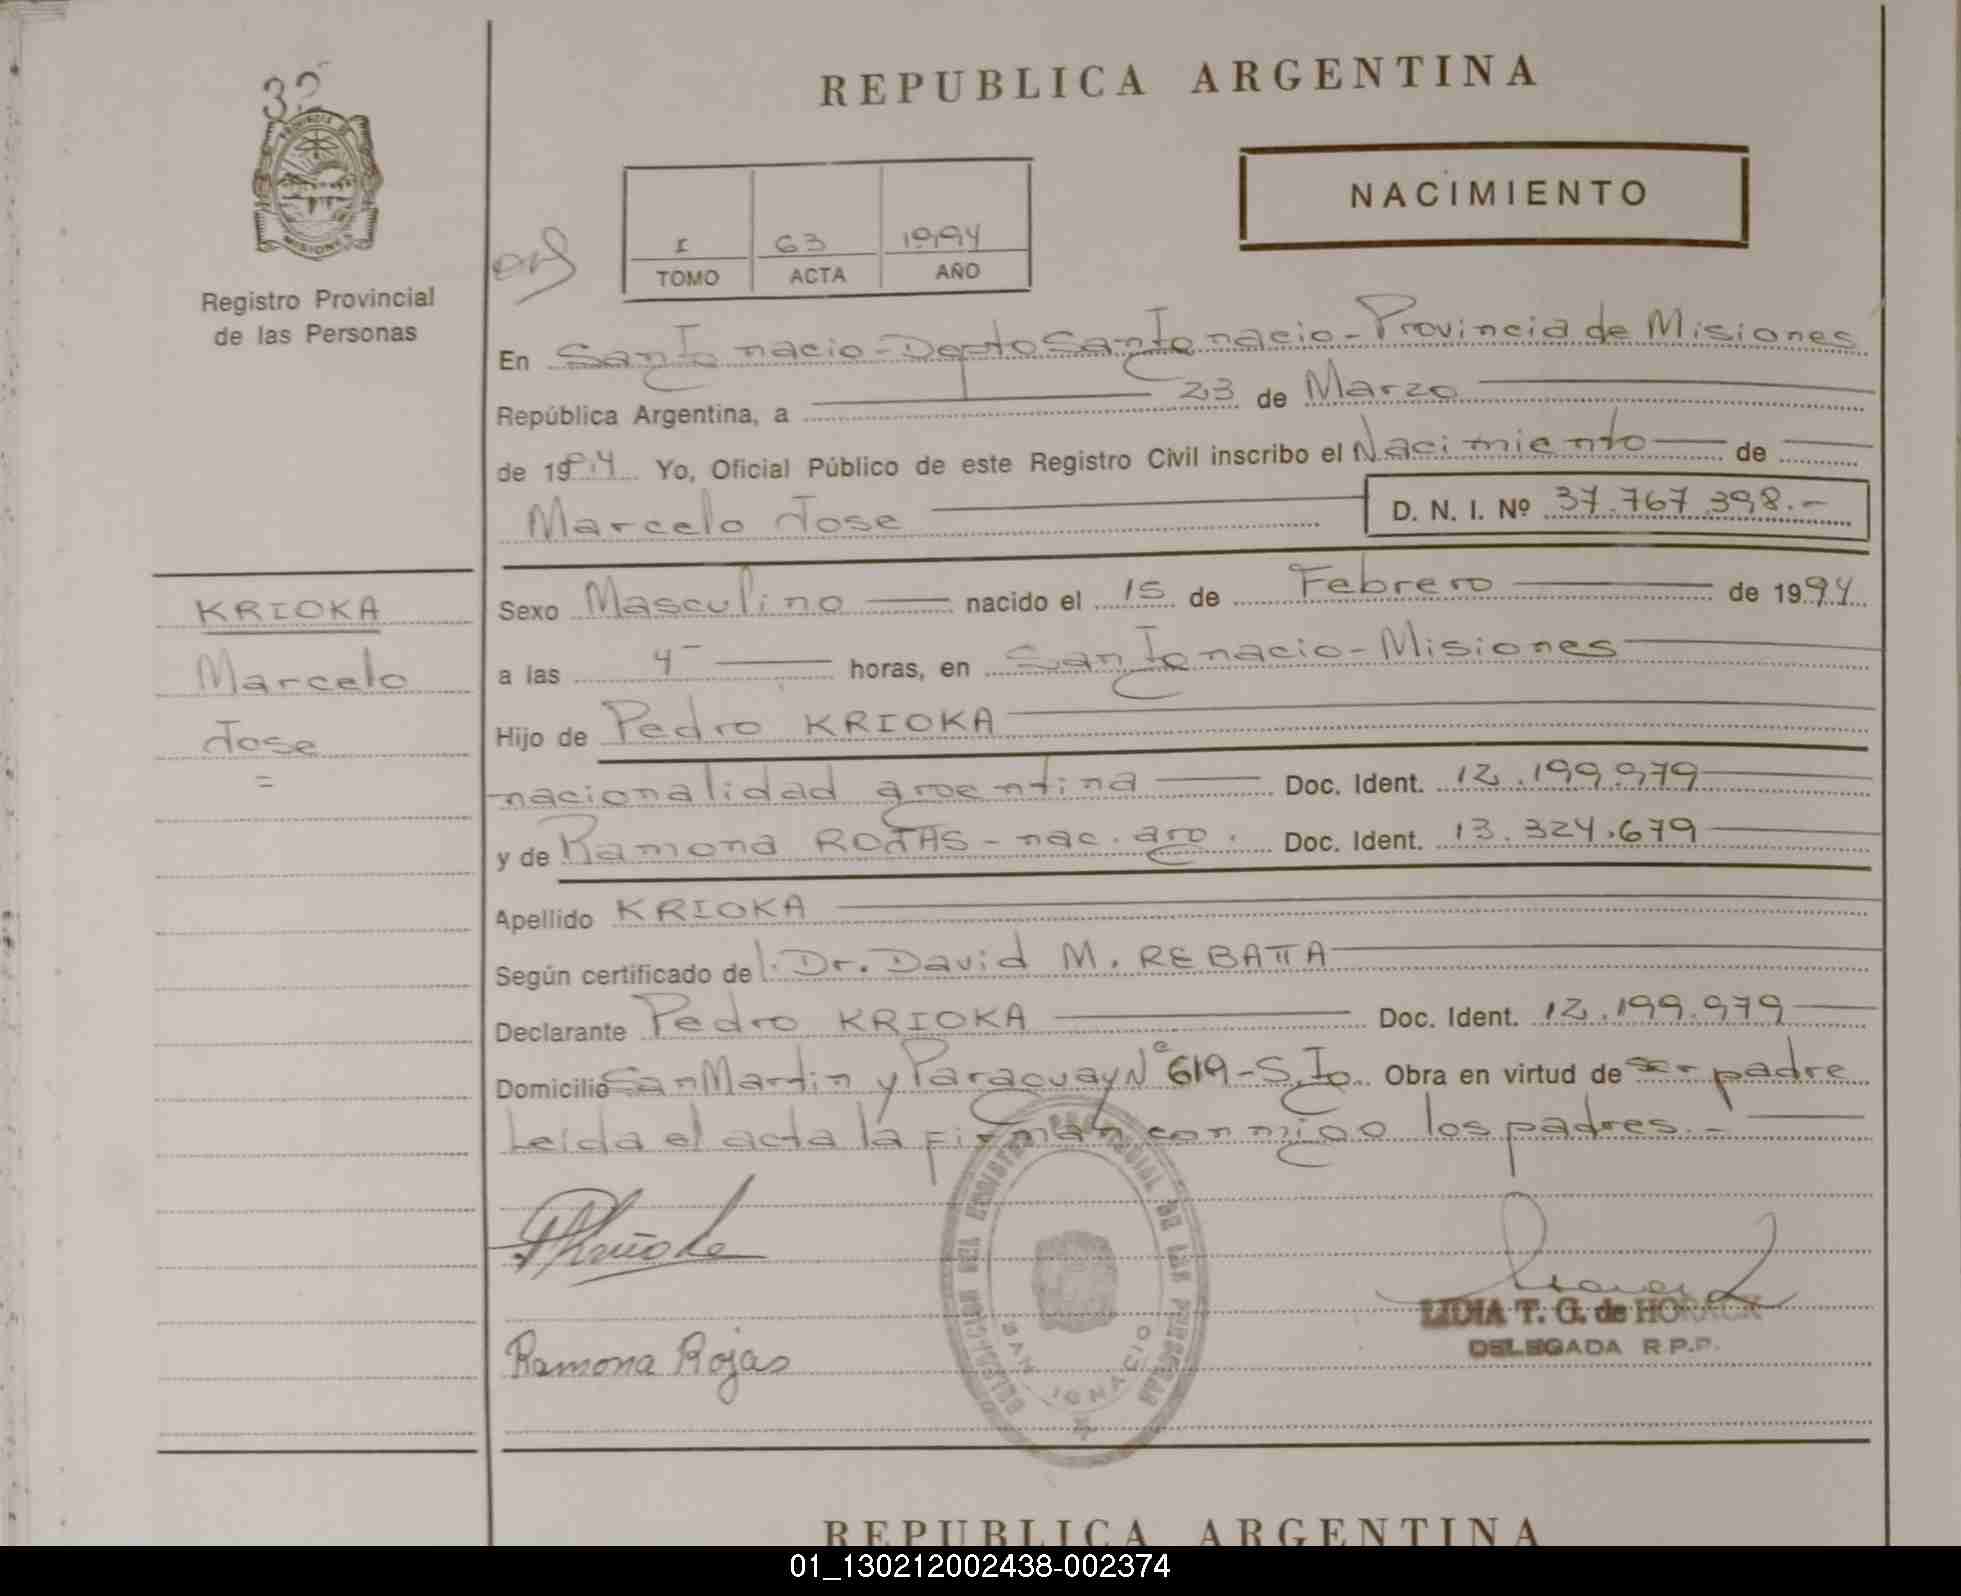 32
PROVINCIA DE
MISIONES
Registro Provincial
de las Personas
REPUBLICA ARGENTINA
NACIMIENTO
I 63 1994
TOMO ACTA AÑO
En San Ignacio - Depto San Ignacio - Provincia de Misiones
República Argentina, a 23 de Marzo
de 1994 Yo, Oficial Público de este Registro Civil inscribo el Nacimiento de
Marcelo Jose D. N. I. Nº 37.767.398.-
KRIOKA
Marcelo
Jose
=
Sexo Masculino nacido el 15 de Febrero de 1994
a las 4- horas, en San Ignacio - Misiones
Hijo de Pedro KRIOKA
nacionalidad argentina Doc. Ident. 12.199.979
y de Ramona ROJAS - nac. arg. Doc. Ident. 13.324.679
Apellido KRIOKA
Según certificado del. Dr. David M. REBATTA
Declarante Pedro KRIOKA Doc. Ident. 12.199.979
Domicilio San Martin y Paraguay Nº 619 - S. Ig. Obra en virtud de ser padre
Leída el acta la firman conmigo los padres.-
Ramona Rojas
SAN IGNACIO
LIDIA T. G. de HORACK
DELEGADA R.P.P.
REPUBLICA ARGENTINA
01_130212002438-002374